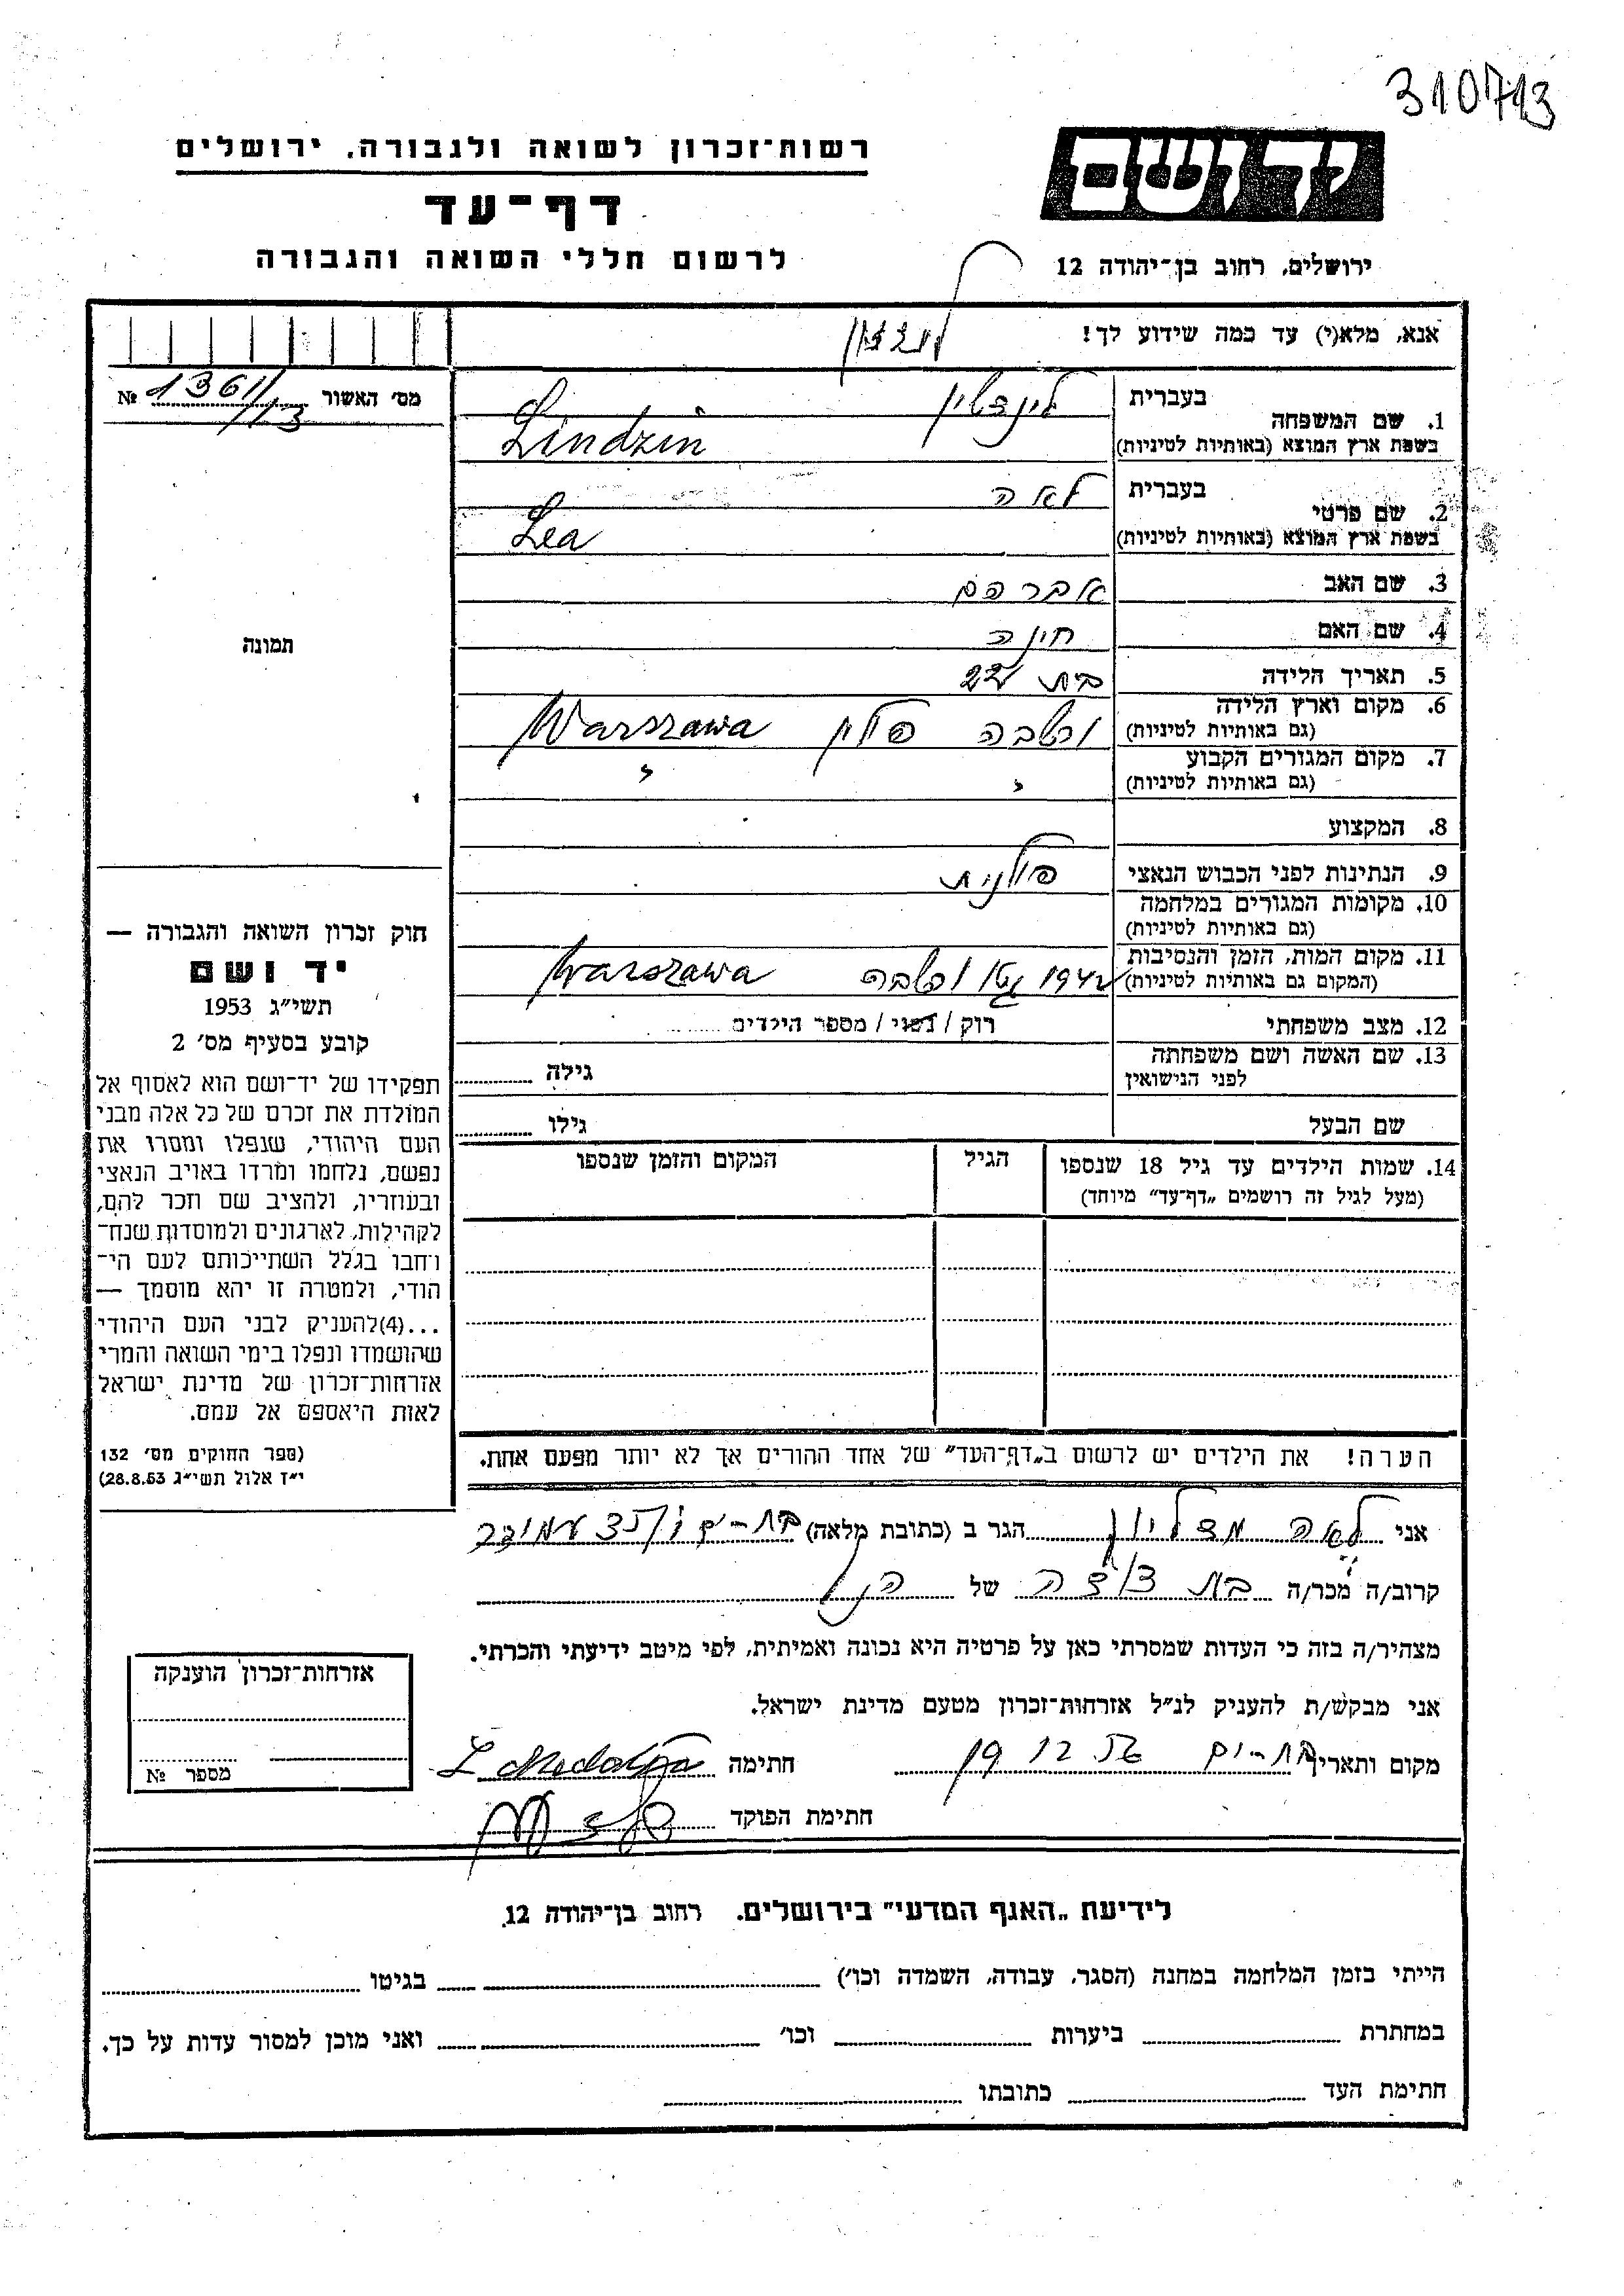 310713
ידושם
רשות־זכרון לשואה ולגבורה, ירושלים
דף־עד
לרשום חללי השואה והגבורה
ירושלים, רחוב בן־יהודה 12
אנא, מלא(י) עד כמה שידוע לך!
מס׳ האשור 1361/113 №
1. שם המשפחה
בעברית
בשפת ארץ המוצא (באותיות לטיניות) Lindzin
2. שם פרטי
בעברית לאה
בשפת ארץ המוצא (באותיות לטיניות) Lea
3. שם האב אברהם
4. שם האם חינה
5. תאריך הלידה בת 22
6. מקום וארץ הלידה ורשבה פולין Warszawa
(גם באותיות לטיניות)
7. מקום המגורים הקבוע
(גם באותיות לטיניות)
8. המקצוע
9. הנתינות לפני הכבוש הנאצי פולנית
10. מקומות המגורים במלחמה
(גם באותיות לטיניות)
11. מקום המות, הזמן והנסיבות 1942 גטו ורשבה Warszawa
(המקום גם באותיות לטיניות)
12. מצב משפחתי רוק / נשוי / מספר הילדים
13. שם האשה ושם משפחתה
לפני הנישואין
גילה
שם הבעל גילו
14. שמות הילדים עד גיל 18 שנספו
(מעל לגיל זה רושמים „דף־עד” מיוחד)
הגיל
המקום והזמן שנספו
הערה! את הילדים יש לרשום ב„דף־העד” של אחד ההורים אך לא יותר מפעם אחת.
תמונה
חוק זכרון השואה והגבורה —
יד ושם
תשי״ג 1953
קובע בסעיף מס׳ 2
תפקידו של יד־ושם הוא לאסוף אל
המולדת את זכרם של כל אלה מבני
העם היהודי, שנפלו ומסרו את
נפשם, נלחמו ומרדו באויב הנאצי
ובעוזריו, ולהציב שם וזכר להם,
לקהילות, לארגונים ולמוסדות שנח־
רבו בגלל השתייכותם לעם הי־
הודי, ולמטרה זו יהא מוסמך —
...(4)להעניק לבני העם היהודי
שהושמדו ונפלו בימי השואה והמרי
אזרחות־זכרון של מדינת ישראל
לאות היאספם אל עמם.
(ספר החוקים מס׳ 132
י״ז אלול תשי״ג 28.8.53)
אני לאה הגר ב (כתובת מלאה) בת-ים
קרוב/ה מכר/ה בת דודה של הנ״ל
מצהיר/ה בזה כי העדות שמסרתי כאן על פרטיה היא נכונה ואמיתית, לפי מיטב ידיעתי והכרתי.
אני מבקש/ת להעניק לנ״ל אזרחות־זכרון מטעם מדינת ישראל.
מקום ותאריך בת-ים 19 12 56 חתימה
חתימת הפוקד
אזרחות־זכרון הוענקה
מספר №
לידיעת „האגף המדעי” בירושלים. רחוב בן־יהודה 12
הייתי בזמן המלחמה במחנה (הסגר, עבודה, השמדה וכו׳) בגיטו
במחתרת ביערות וכו׳ ואני מוכן למסור עדות על כך.
חתימת העד כתובתו